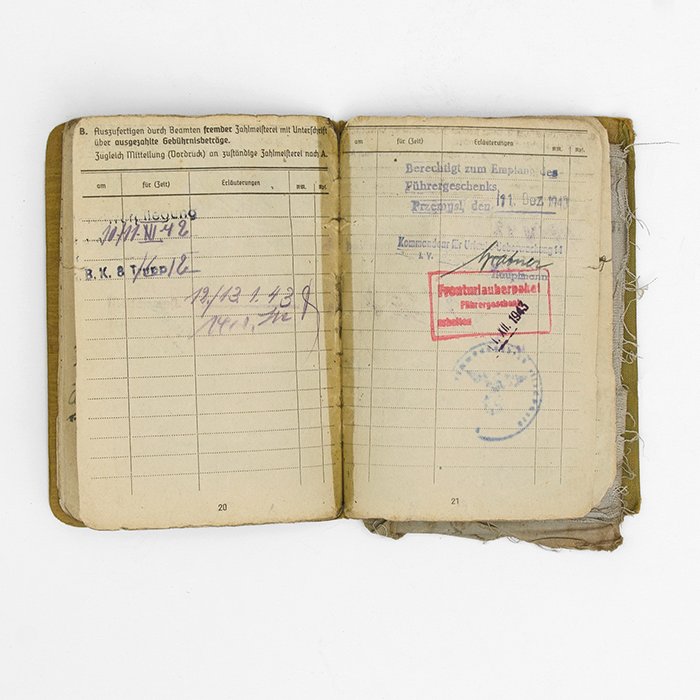 B. Auszufertigen durch Beamten fremder Zahlmeisterei mit Unterschrift
über ausgezahlte Gebührnisbeträge.
Zugleich Mitteilung (Vordruck) an zuständige Zahlmeisterei nach A.
am für (Zeit) Erläuterungen RM. Rpf.
10/11. XI 42
B.K. 8
12/13 1.43
20
am für (Zeit) Erläuterungen RM. Rpf.
Berechtigt zum Empfang des
Führergeschenks
Przemysl, den 11. Dez. 1943
Kommandeur für Urlaub
I. V.
Hauptmann
Fronturlauberpaket
Führergeschenk
erhalten
XII. 1943
21